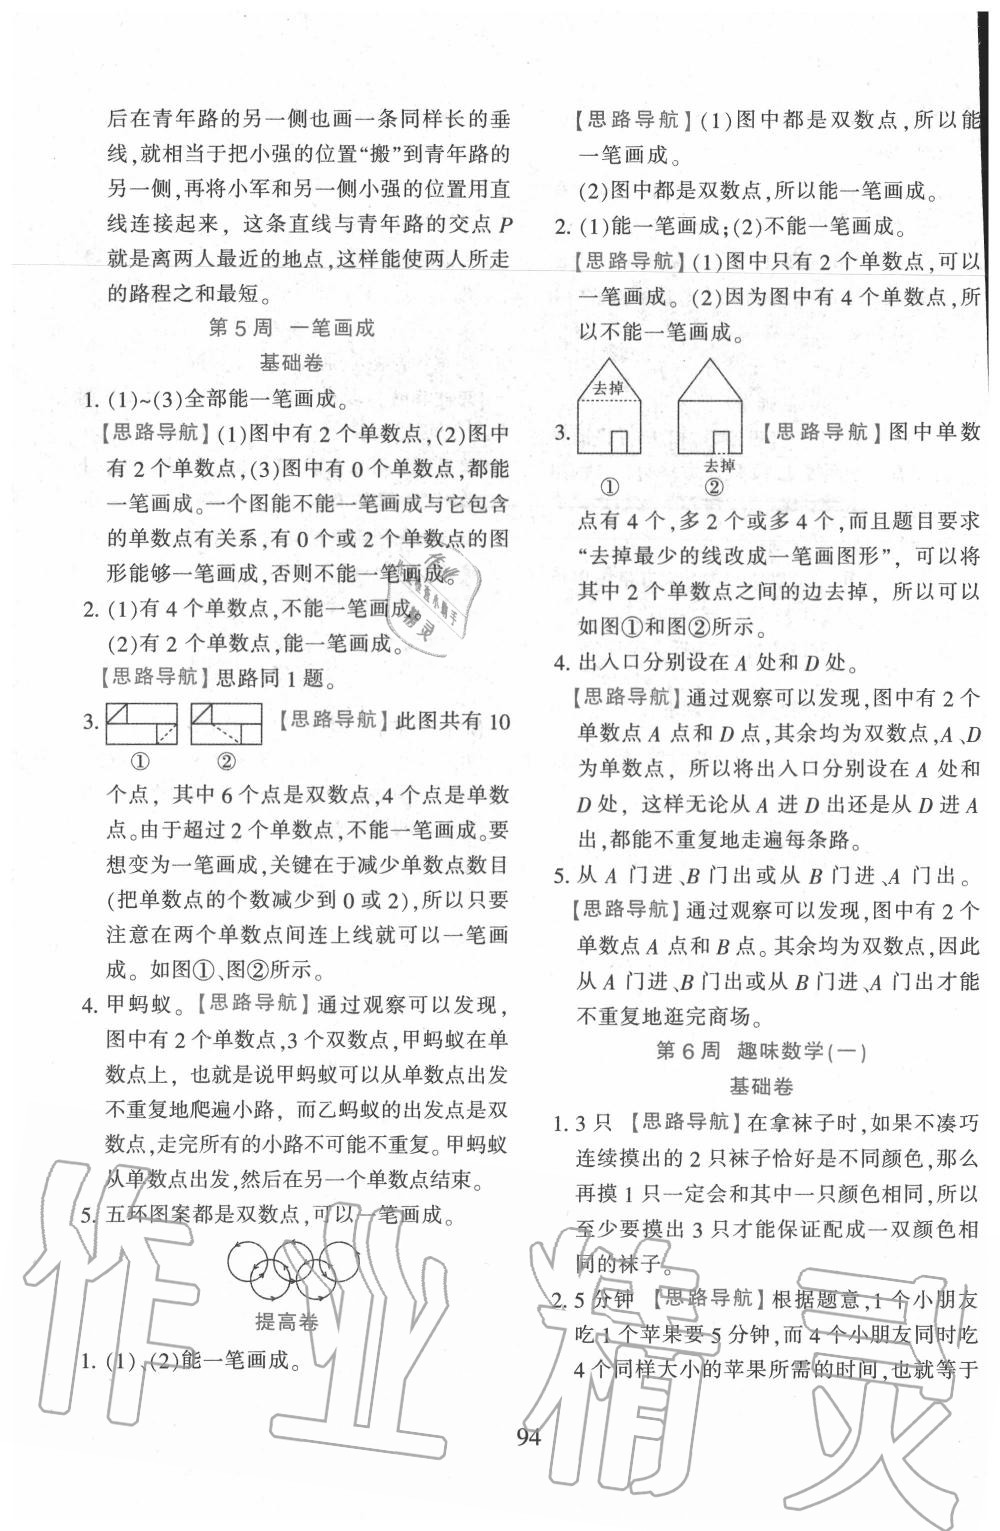 后在青年路的另一侧也画一条同样长的垂
线,就相当于把小强的位置“搬”到青年路的
另一侧,再将小军和另一侧小强的位置用直
线连接起来，这条直线与青年路的交点 P
就是离两人最近的地点,这样能使两人所走
的路程之和最短。
第 5 周 一笔画成
基础卷
1. (1)~(3)全部能一笔画成。
【思路导航】(1)图中有 2 个单数点,(2)图中
有 2 个单数点,(3)图中有 0 个单数点,都能
一笔画成。一个图能不能一笔画成与它包含
的单数点有关系,有 0 个或 2 个单数点的图
形能够一笔画成,否则不能一笔画成。
2. (1)有 4 个单数点,不能一笔画成。
(2)有 2 个单数点,能一笔画成。
【思路导航】思路同 1 题。
3. 【思路导航】此图共有 10
① ②
个点，其中 6 个点是双数点,4 个点是单数
点。由于超过 2 个单数点,不能一笔画成。要
想变为一笔画成,关键在于减少单数点数目
(把单数点的个数减少到 0 或 2),所以只要
注意在两个单数点间连上线就可以一笔画
成。如图①、图②所示。
4. 甲蚂蚁。【思路导航】通过观察可以发现,
图中有 2 个单数点,3 个双数点,甲蚂蚁在单
数点上，也就是说甲蚂蚁从单数点出发
不重复地爬遍小路，而乙蚂蚁的出发点是双
数点,走完所有的小路不可能不重复。甲蚂蚁
从单数点出发,然后在另一个单数点结束。
5. 五环图案都是双数点,可以一笔画成。
提高卷
1. (1)、(2)能一笔画成。
【思路导航】(1)图中都是双数点,所以能
一笔画成。
(2)图中都是双数点,所以能一笔画成。
2. (1)能一笔画成;(2)不能一笔画成。
【思路导航】(1)图中只有 2 个单数点,可以
一笔画成。(2)因为图中有 4 个单数点,所
以不能一笔画成。
去掉
3. 【思路导航】图中单数
去掉
① ②
点有 4 个,多 2 个或多 4 个,而且题目要求
“去掉最少的线改成一笔画图形”，可以将
其中 2 个单数点之间的边去掉，所以可以
如图①和图②所示。
4. 出入口分别设在 A 处和 D 处。
【思路导航】通过观察可以发现,图中有 2 个
单数点 A 点和 D 点,其余均为双数点,A、D
为单数点，所以将出入口分别设在 A 处和
D 处，这样无论从 A 进 D 出还是从 D 进 A
出,都能不重复地走遍每条路。
5. 从 A 门进、B 门出或从 B 门进、A 门出。
【思路导航】通过观察可以发现,图中有 2 个
单数点 A 点和 B 点。其余均为双数点,因此
从 A 门进、B 门出或从 B 门进、A 门出才能
不重复地逛完商场。
第 6 周 趣味数学(一)
基础卷
1. 3 只 【思路导航】在拿袜子时,如果不凑巧
连续摸出的 2 只袜子恰好是不同颜色,那么
再摸 1 只一定会和其中一只颜色相同,所以
至少要摸出 3 只才能保证配成一双颜色相
同的袜子。
2. 5 分钟 【思路导航】根据题意,1 个小朋友
吃 1 个苹果要 5 分钟,而 4 个小朋友同时吃
4 个同样大小的苹果所需的时间,也就等于
94
作业精灵